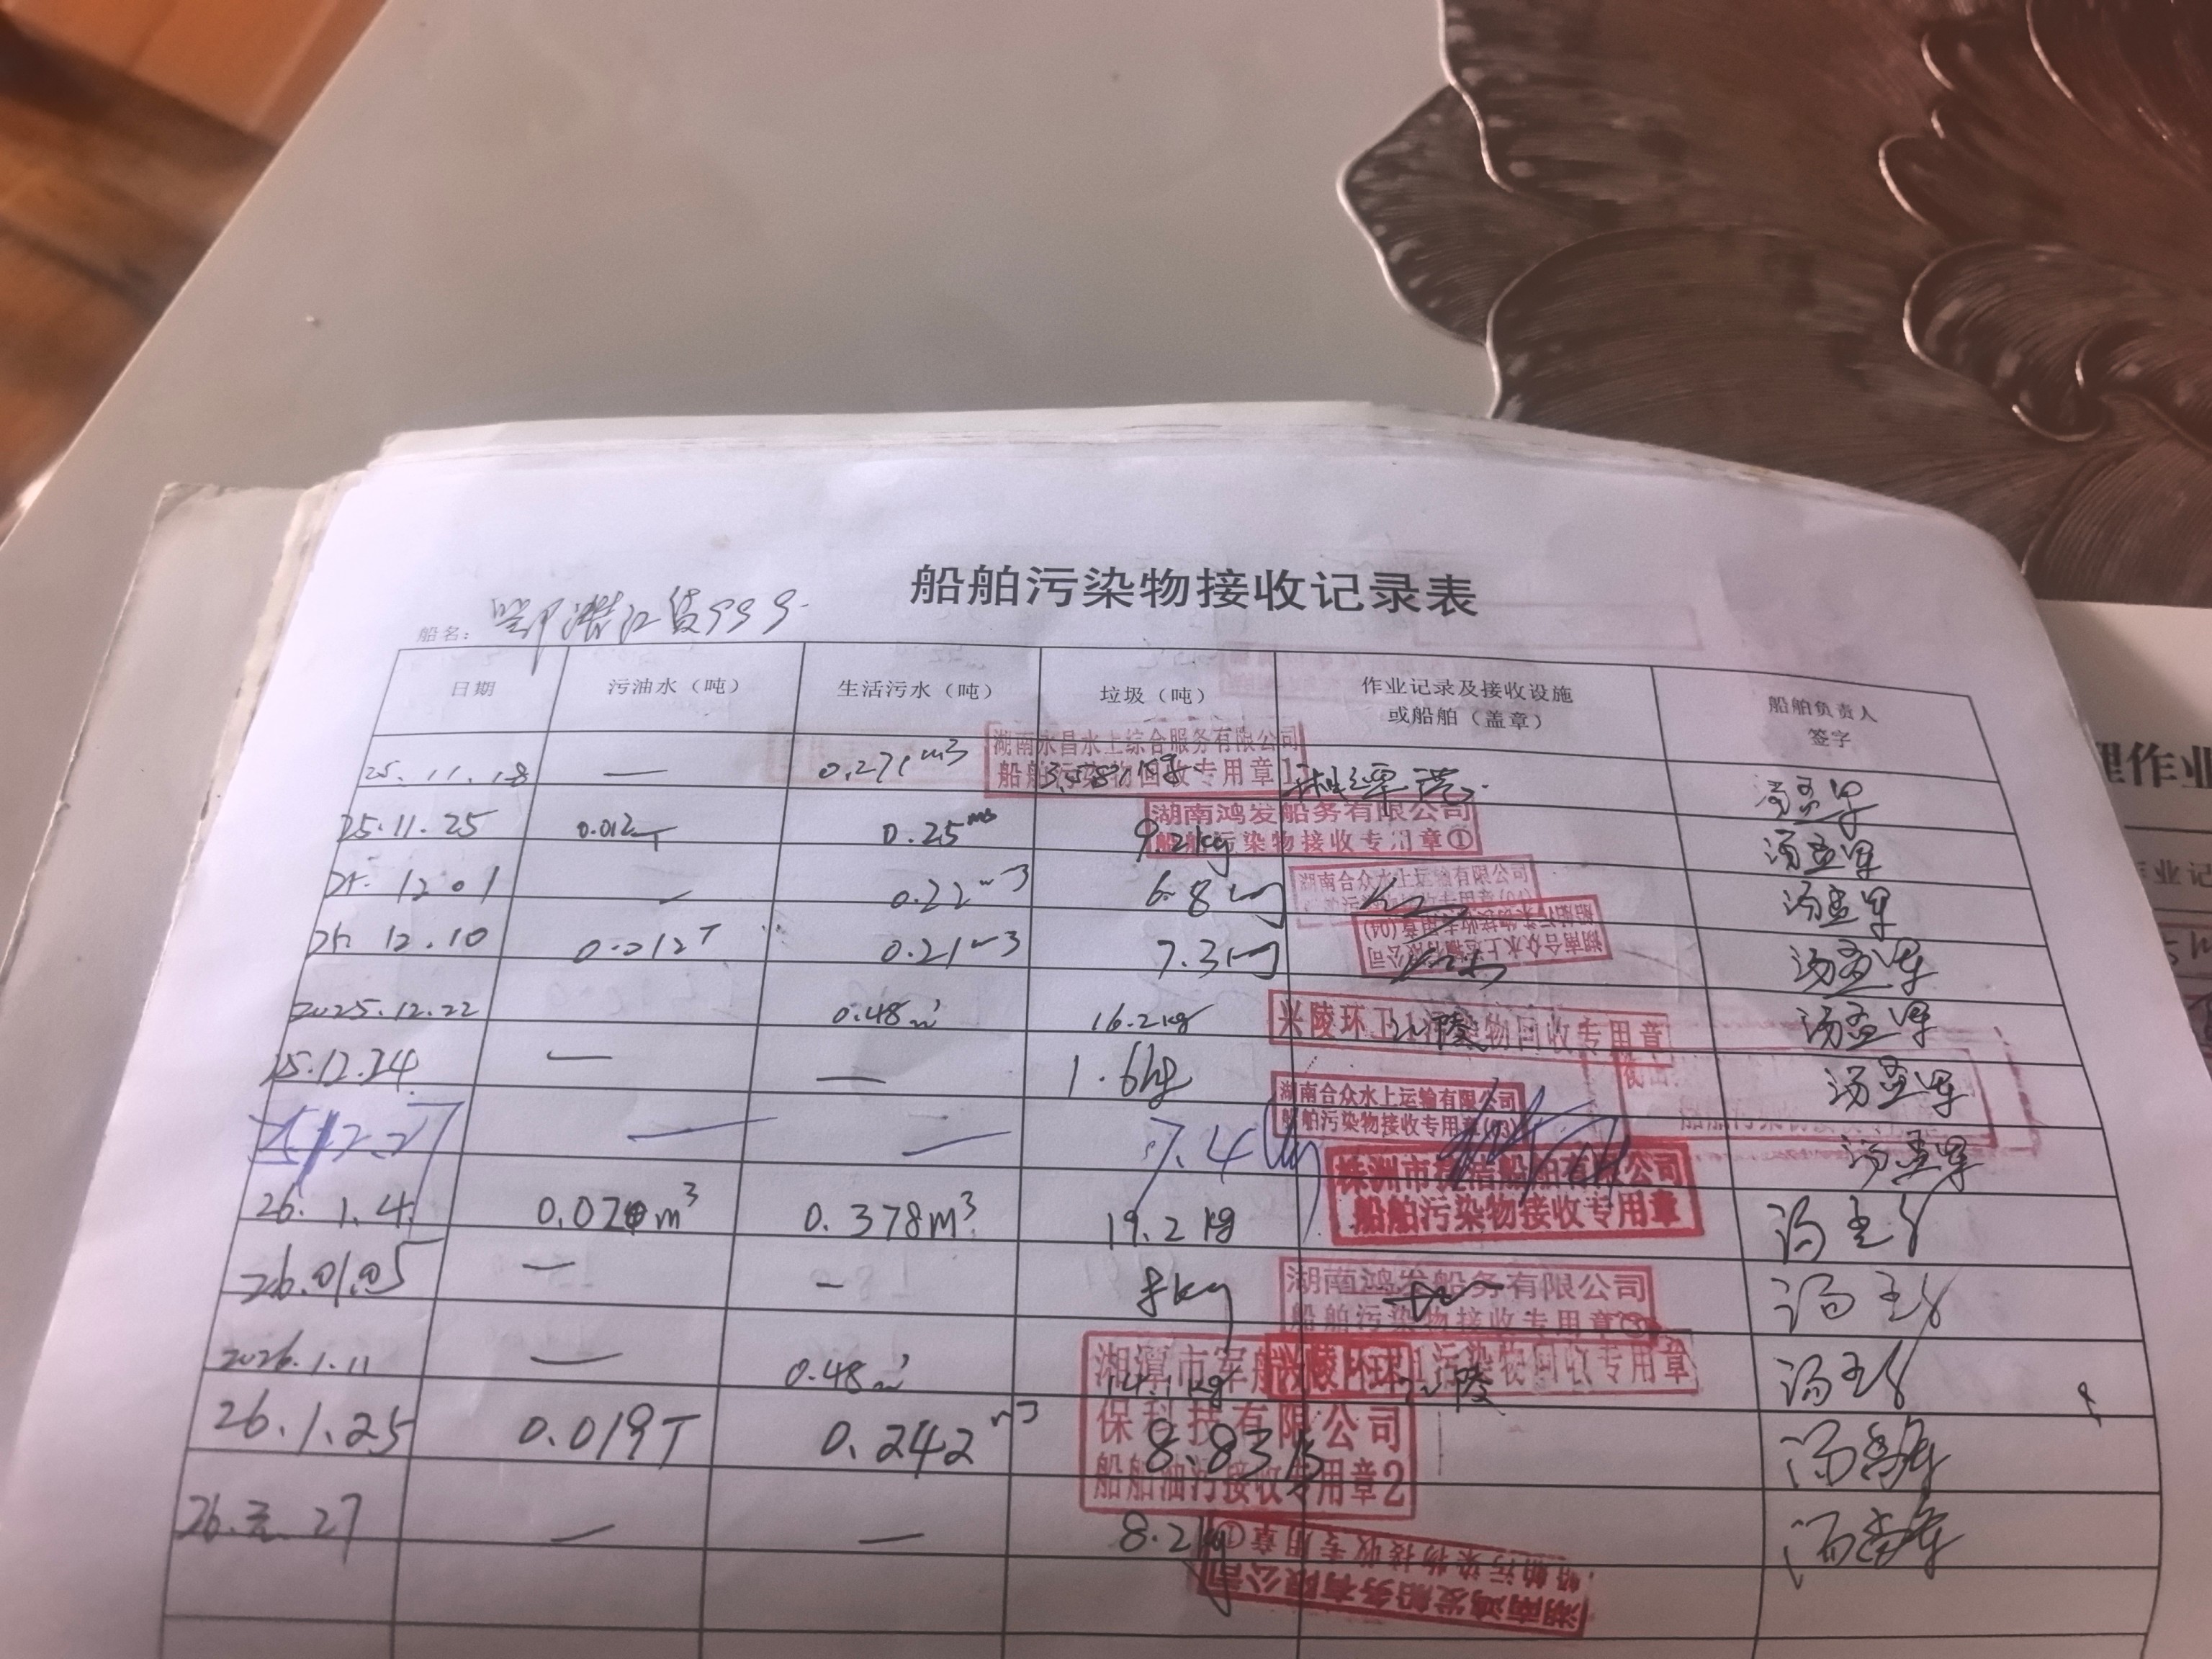 船舶污染物接收记录表
船名: 鄂潜江货999
日期 污油水（吨） 生活污水（吨） 垃圾（吨） 作业记录及接收设施或船舶（盖章） 船舶负责人签字
25.11.18 — 0.271m3 湖南永昌水上综合服务有限公司 船舶污染物回收专用章1 湘潭港
25.11.25 0.012T 0.25m3 9.2kg 湖南鸿发船务有限公司 船舶污染物接收专用章①
25.12.01 — 0.22m3 6.8kg 湖南合众水上运输有限公司
25.12.10 0.012T 0.21m3 7.3kg 湖南合众水上运输有限公司 船舶污染物接收专用章(04)
2025.12.22 0.48m³ 16.2kg 兴陵环卫1污染物回收专用章
25.12.24 — — 1.6kg 湖南合众水上运输有限公司 船舶污染物接收专用章(03)
25.12.27 — — 7.4kg
26.1.4 0.378m³ 19.2kg 株洲市 洁船舶有限公司 船舶污染物接收专用章
26.01.05 — — 8kg 湖南鸿发船务有限公司 船舶污染物接收专用章
2026.1.11 — 0.48m³ 14.1kg 兴陵环卫1污染物回收专用章
26.1.25 0.019T 0.242m3 8.83 湘潭市军 保科技有限公司 船舶油污接收专用章2
26.元.27 — — 8.2kg 湖南鸿发船务有限公司 船舶污染物接收专用章①
理作业